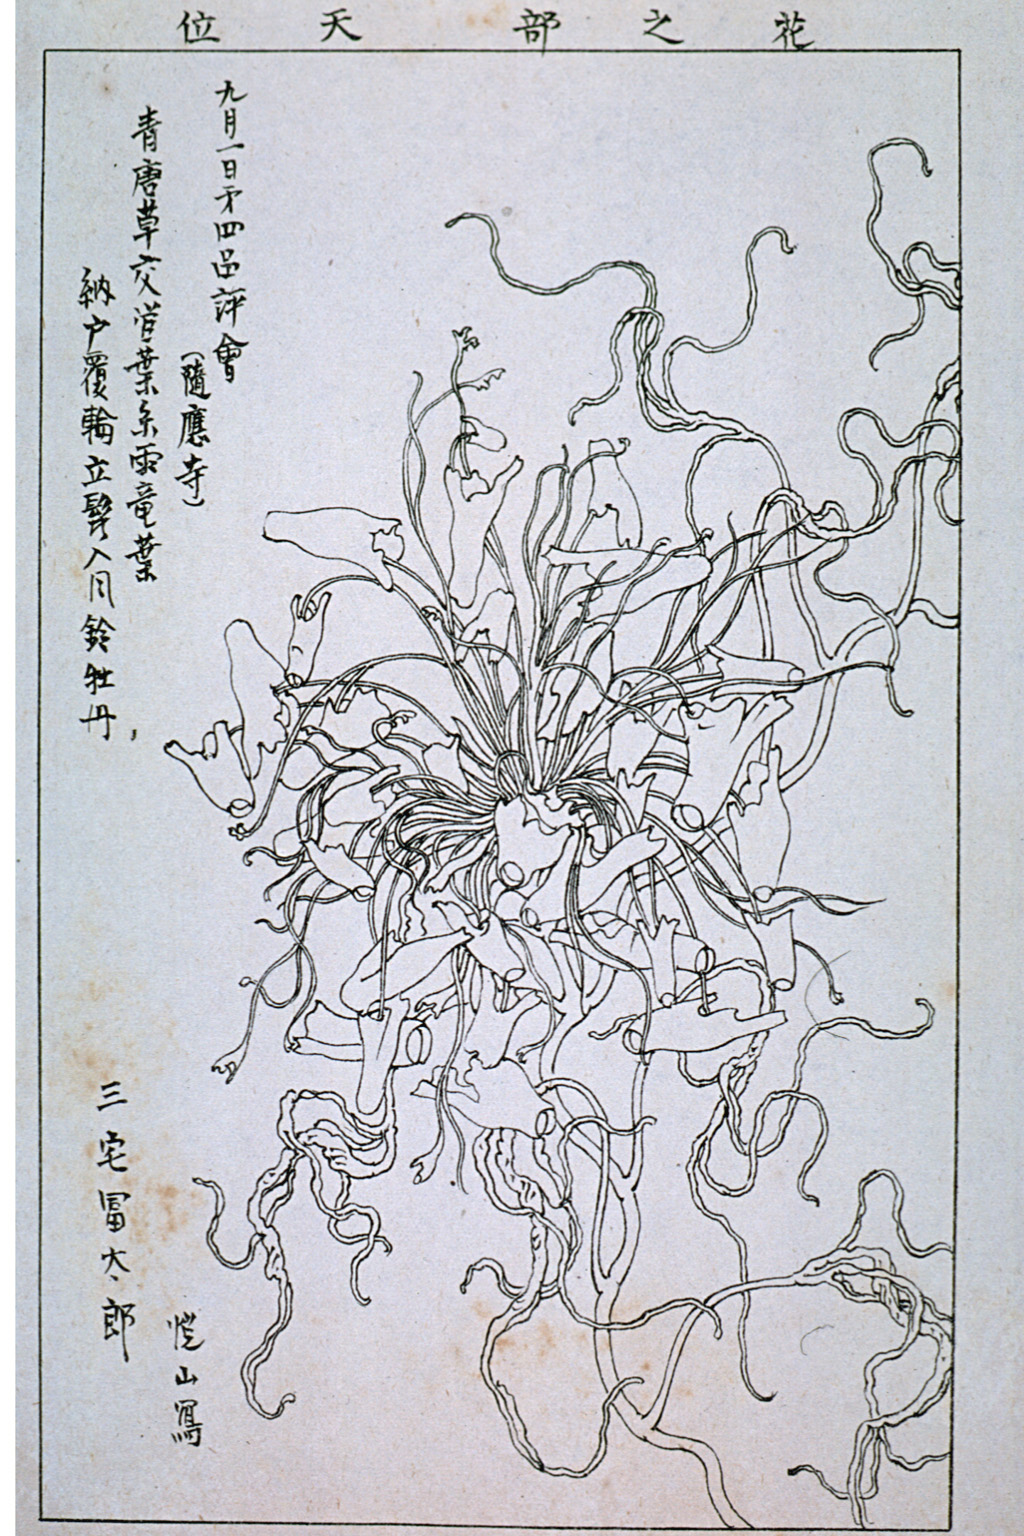 花之部 天位
九月一日才四品評會
(隨應寺)
青唐草交渦葉糸雨竜葉
納戸覆輪立髪入同鈴牡丹
三宅冨太郎
山寫